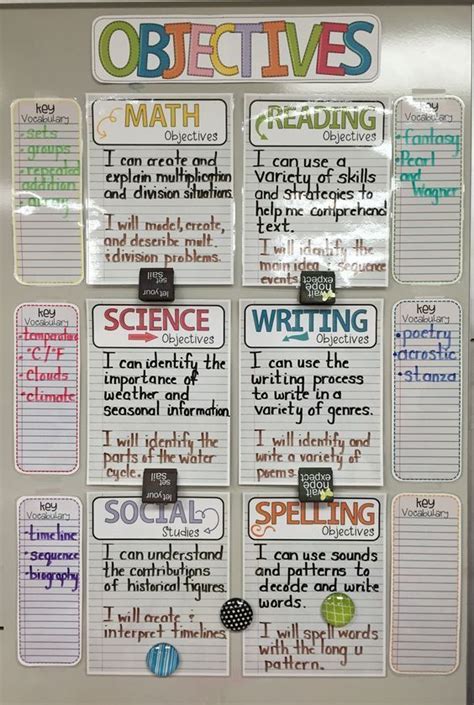 OBJECTIVES
key
Vocabulary
• sets
• groups
• repeated
addition
• array
MATH
Objectives
I can create and
explain multiplication
and division situations.
I will model, create,
and describe mult.
÷ division problems.
READING
Objectives
I can use a
variety of skills
and strategies to
help me comprehend
text.
I will identify the
main idea + sequence
events
key
Vocabulary
• fantasy
• Pearl
and
Wagner
let your
set sail
wait
hope
expect
key
Vocabulary
• temperature
• °C/°F
• Clouds
• climate
SCIENCE
Objectives
I can identify the
importance of
weather and
seasonal information.
I will identify the
parts of the water
cycle.
WRITING
Objectives
I can use the
writing process
to write in a
variety of genres.
I will identify and
write a variety of
poems.
key
Vocabulary
• poetry
• acrostic
• stanza
let your
set sail
wait
hope
expect
key
Vocabulary
• timeline
• sequence
• biography
SOCIAL
Studies
I can understand
the contributions
of historical figures.
I will create +
interpret timelines
SPELLING
Objectives
I can use sounds
and patterns to
decode and write
words.
I will spell words
with the long u
pattern.
key
Vocabulary